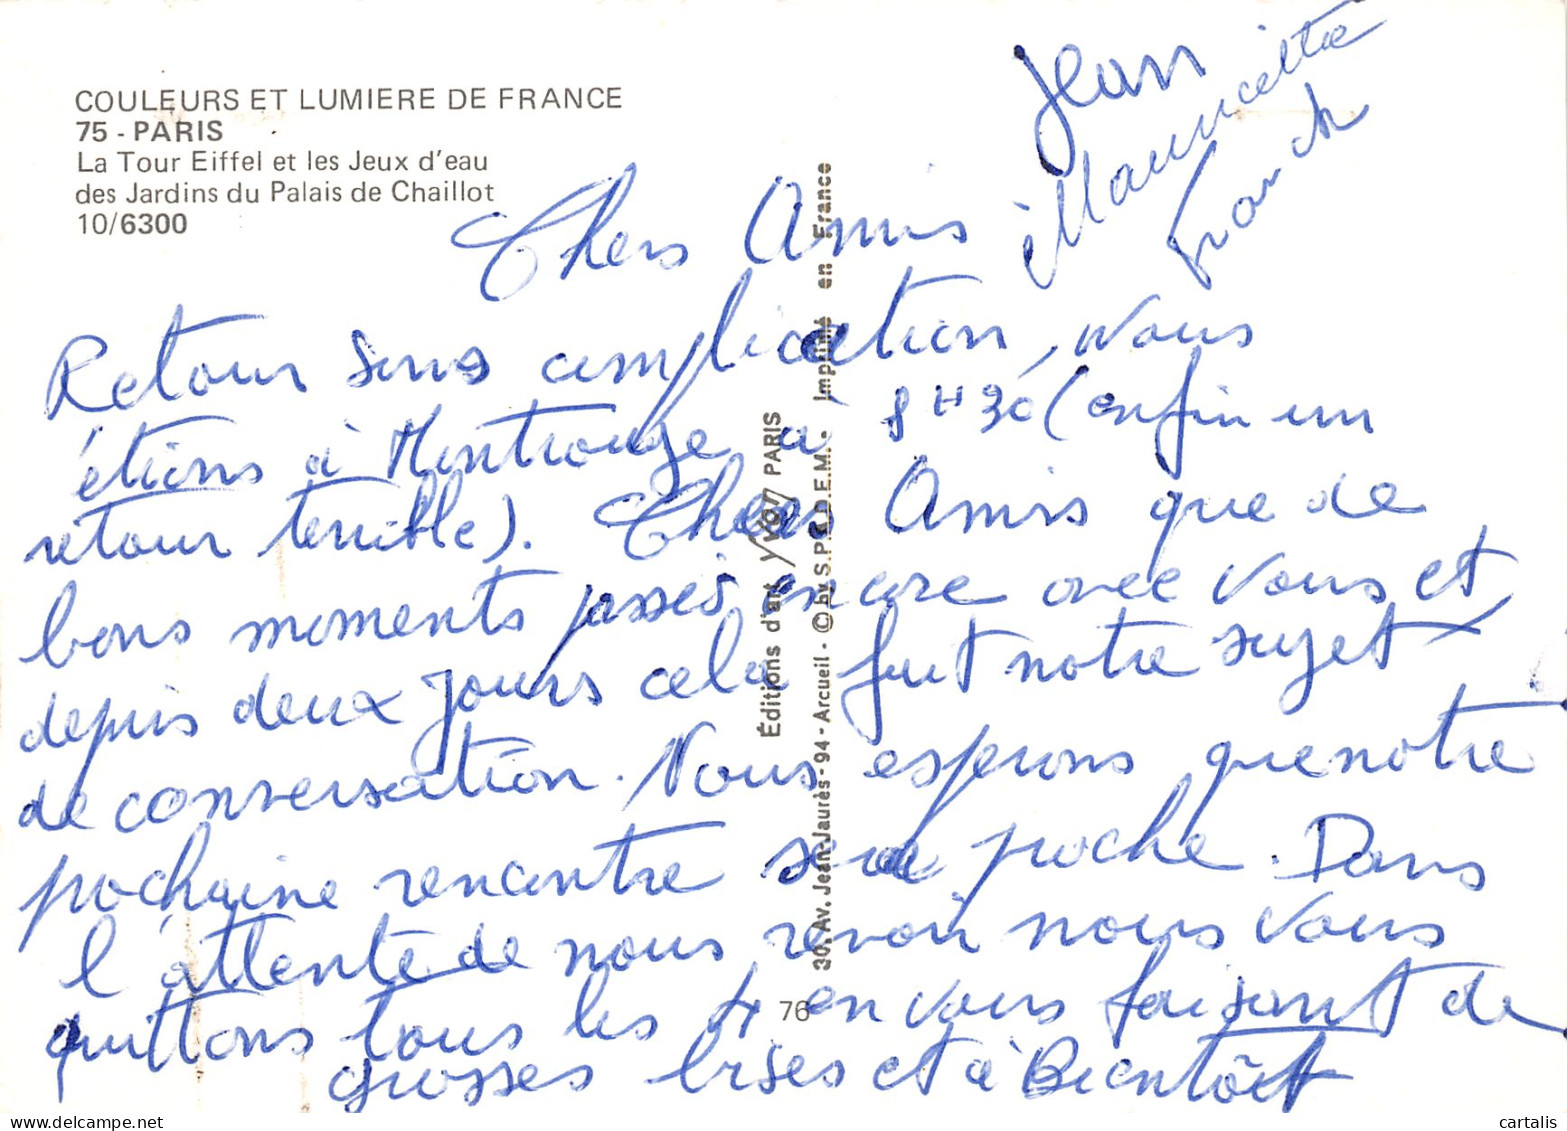 COULEURS ET LUMIERE DE FRANCE
75 - PARIS
La Tour Eiffel et les Jeux d'eau
des Jardins du Palais de Chaillot
10/6300
Jean
franck
Chers Amis
Retour sans complication, Nous
étions à Montrouge a 8H30 (enfin un
retour terrible). Chers Amis que de
bons moments passés encore avec vous et
depuis deux jours cela fait notre sujet
de conversation. Nous esperons que notre
prochaine rencontre sera proche. Dans
l'attente de nous revoir nous vous
quittons tous les 4 en vous faisant de
grosses bises et à Bientôt
Éditions d'art Yvon PARIS
30, Av. Jean-Jaurès - 94 - Arcueil - © by S.P.A.D.E.M. - Imprimé en France
76
www.delcampe.net
cartalis